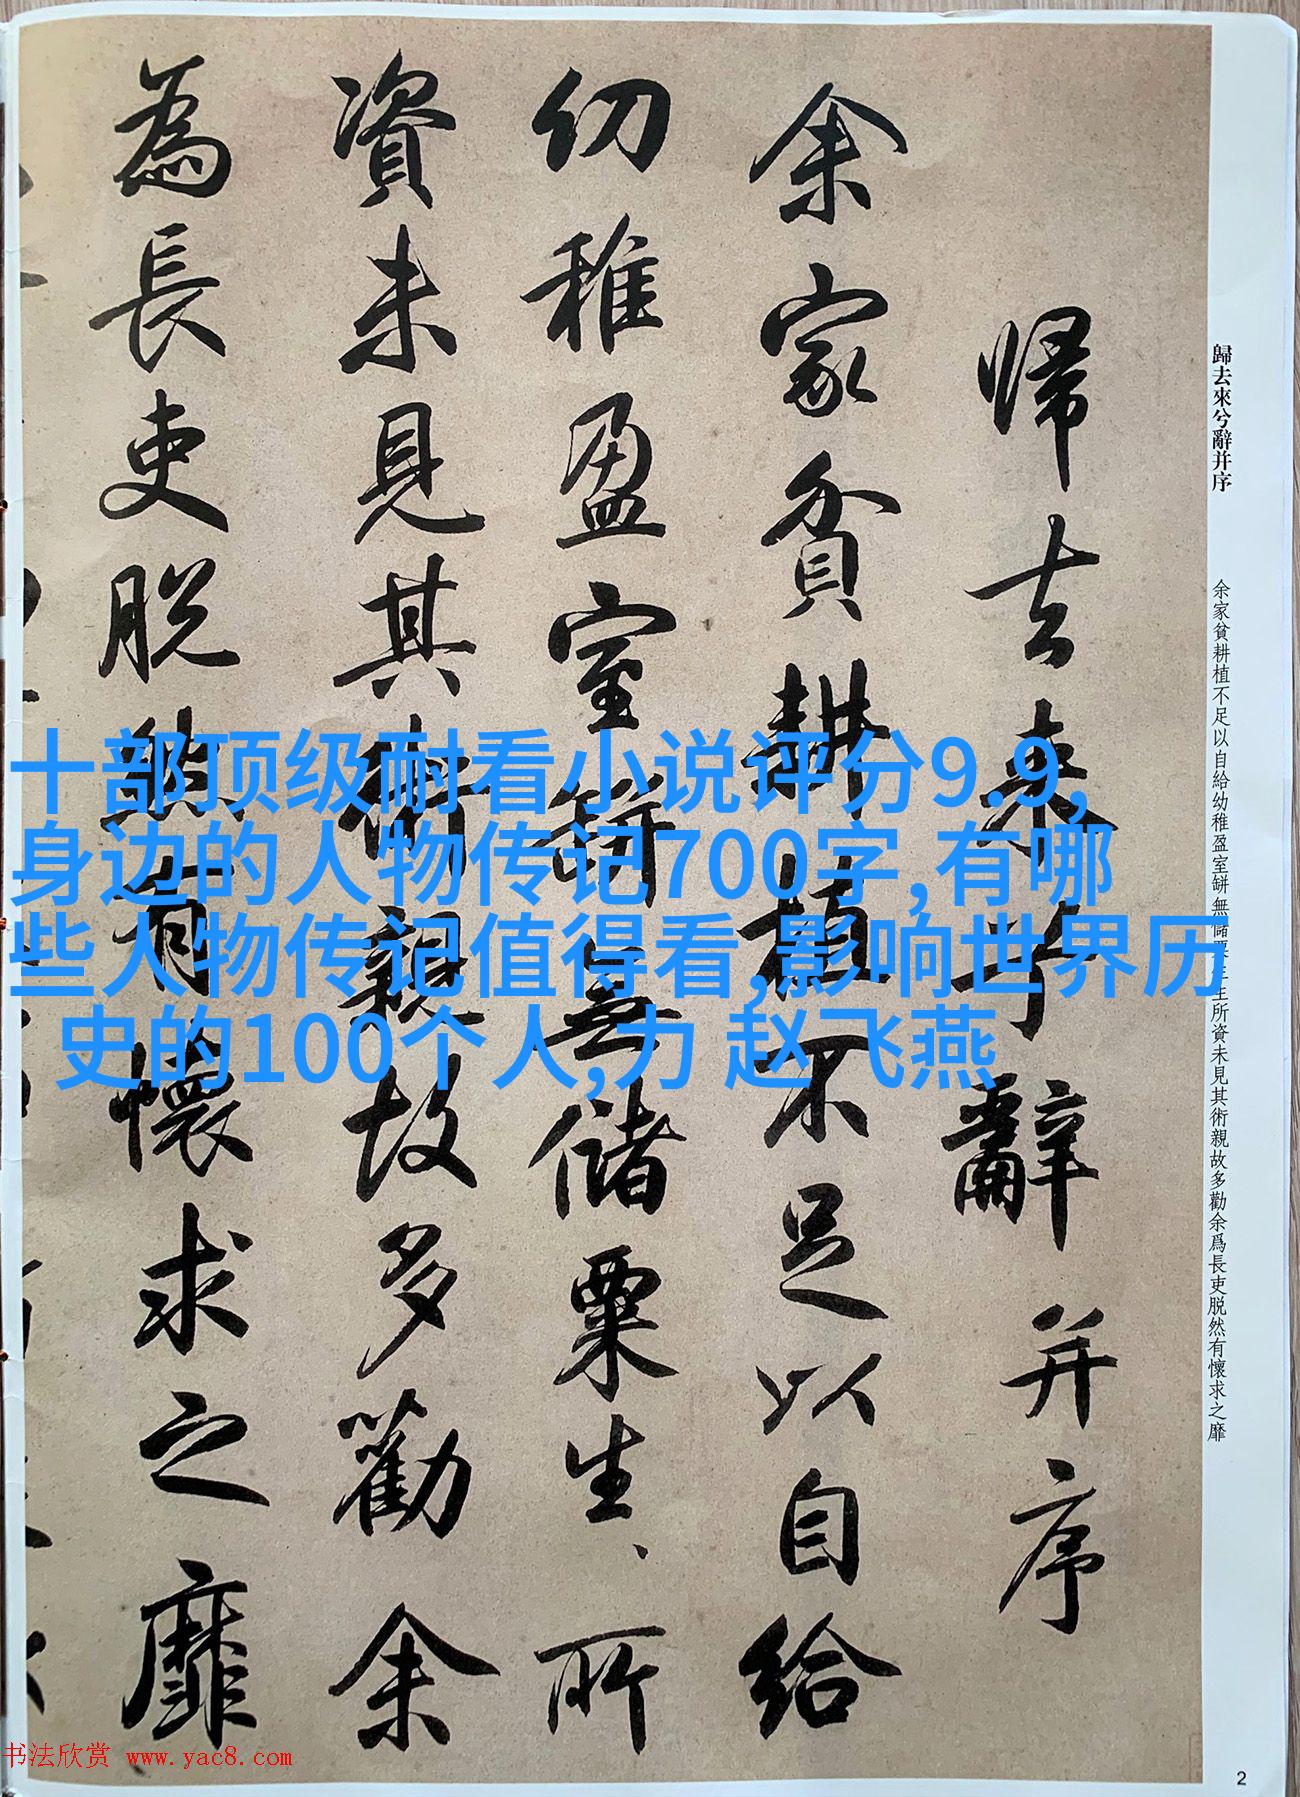 歸去來兮辭并序
余家貧耕植不足以自給幼稚盈室缾無儲粟生生所資未見其術親故多勸余爲長吏脱然有懷求之靡
帰去来兮辭并序
余家貧耕植不足以自給
幼稚盈室缾無儲粟生、所
資未見其術親故多勸余
為長吏脱然有懷求之靡
十部顶级耐看小说评分9.9,
身边的人物传记700字,有哪
些人物传记值得看,影响世界历
史的100个人,力 赵飞燕
书法欣赏 www.yac8.com
2